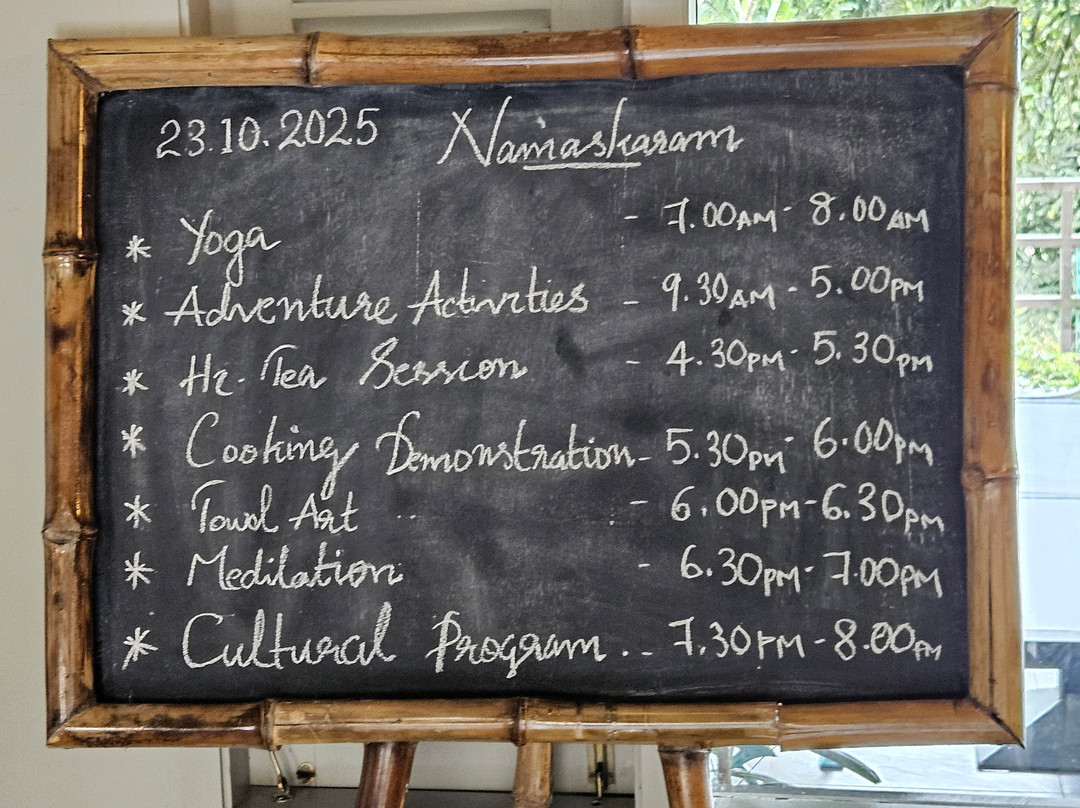 23.10.2025 Namaskaram
* Yoga - 7.00AM - 8.00AM
* Adventure Activities - 9.30AM - 5.00PM
* Hi-Tea Session - 4.30PM - 5.30PM
* Cooking Demonstration - 5.30PM - 6.00PM
* Towel Art - 6.00PM - 6.30PM
* Meditation - 6.30PM - 7.00PM
* Cultural Program .. - 7.30PM - 8.00PM